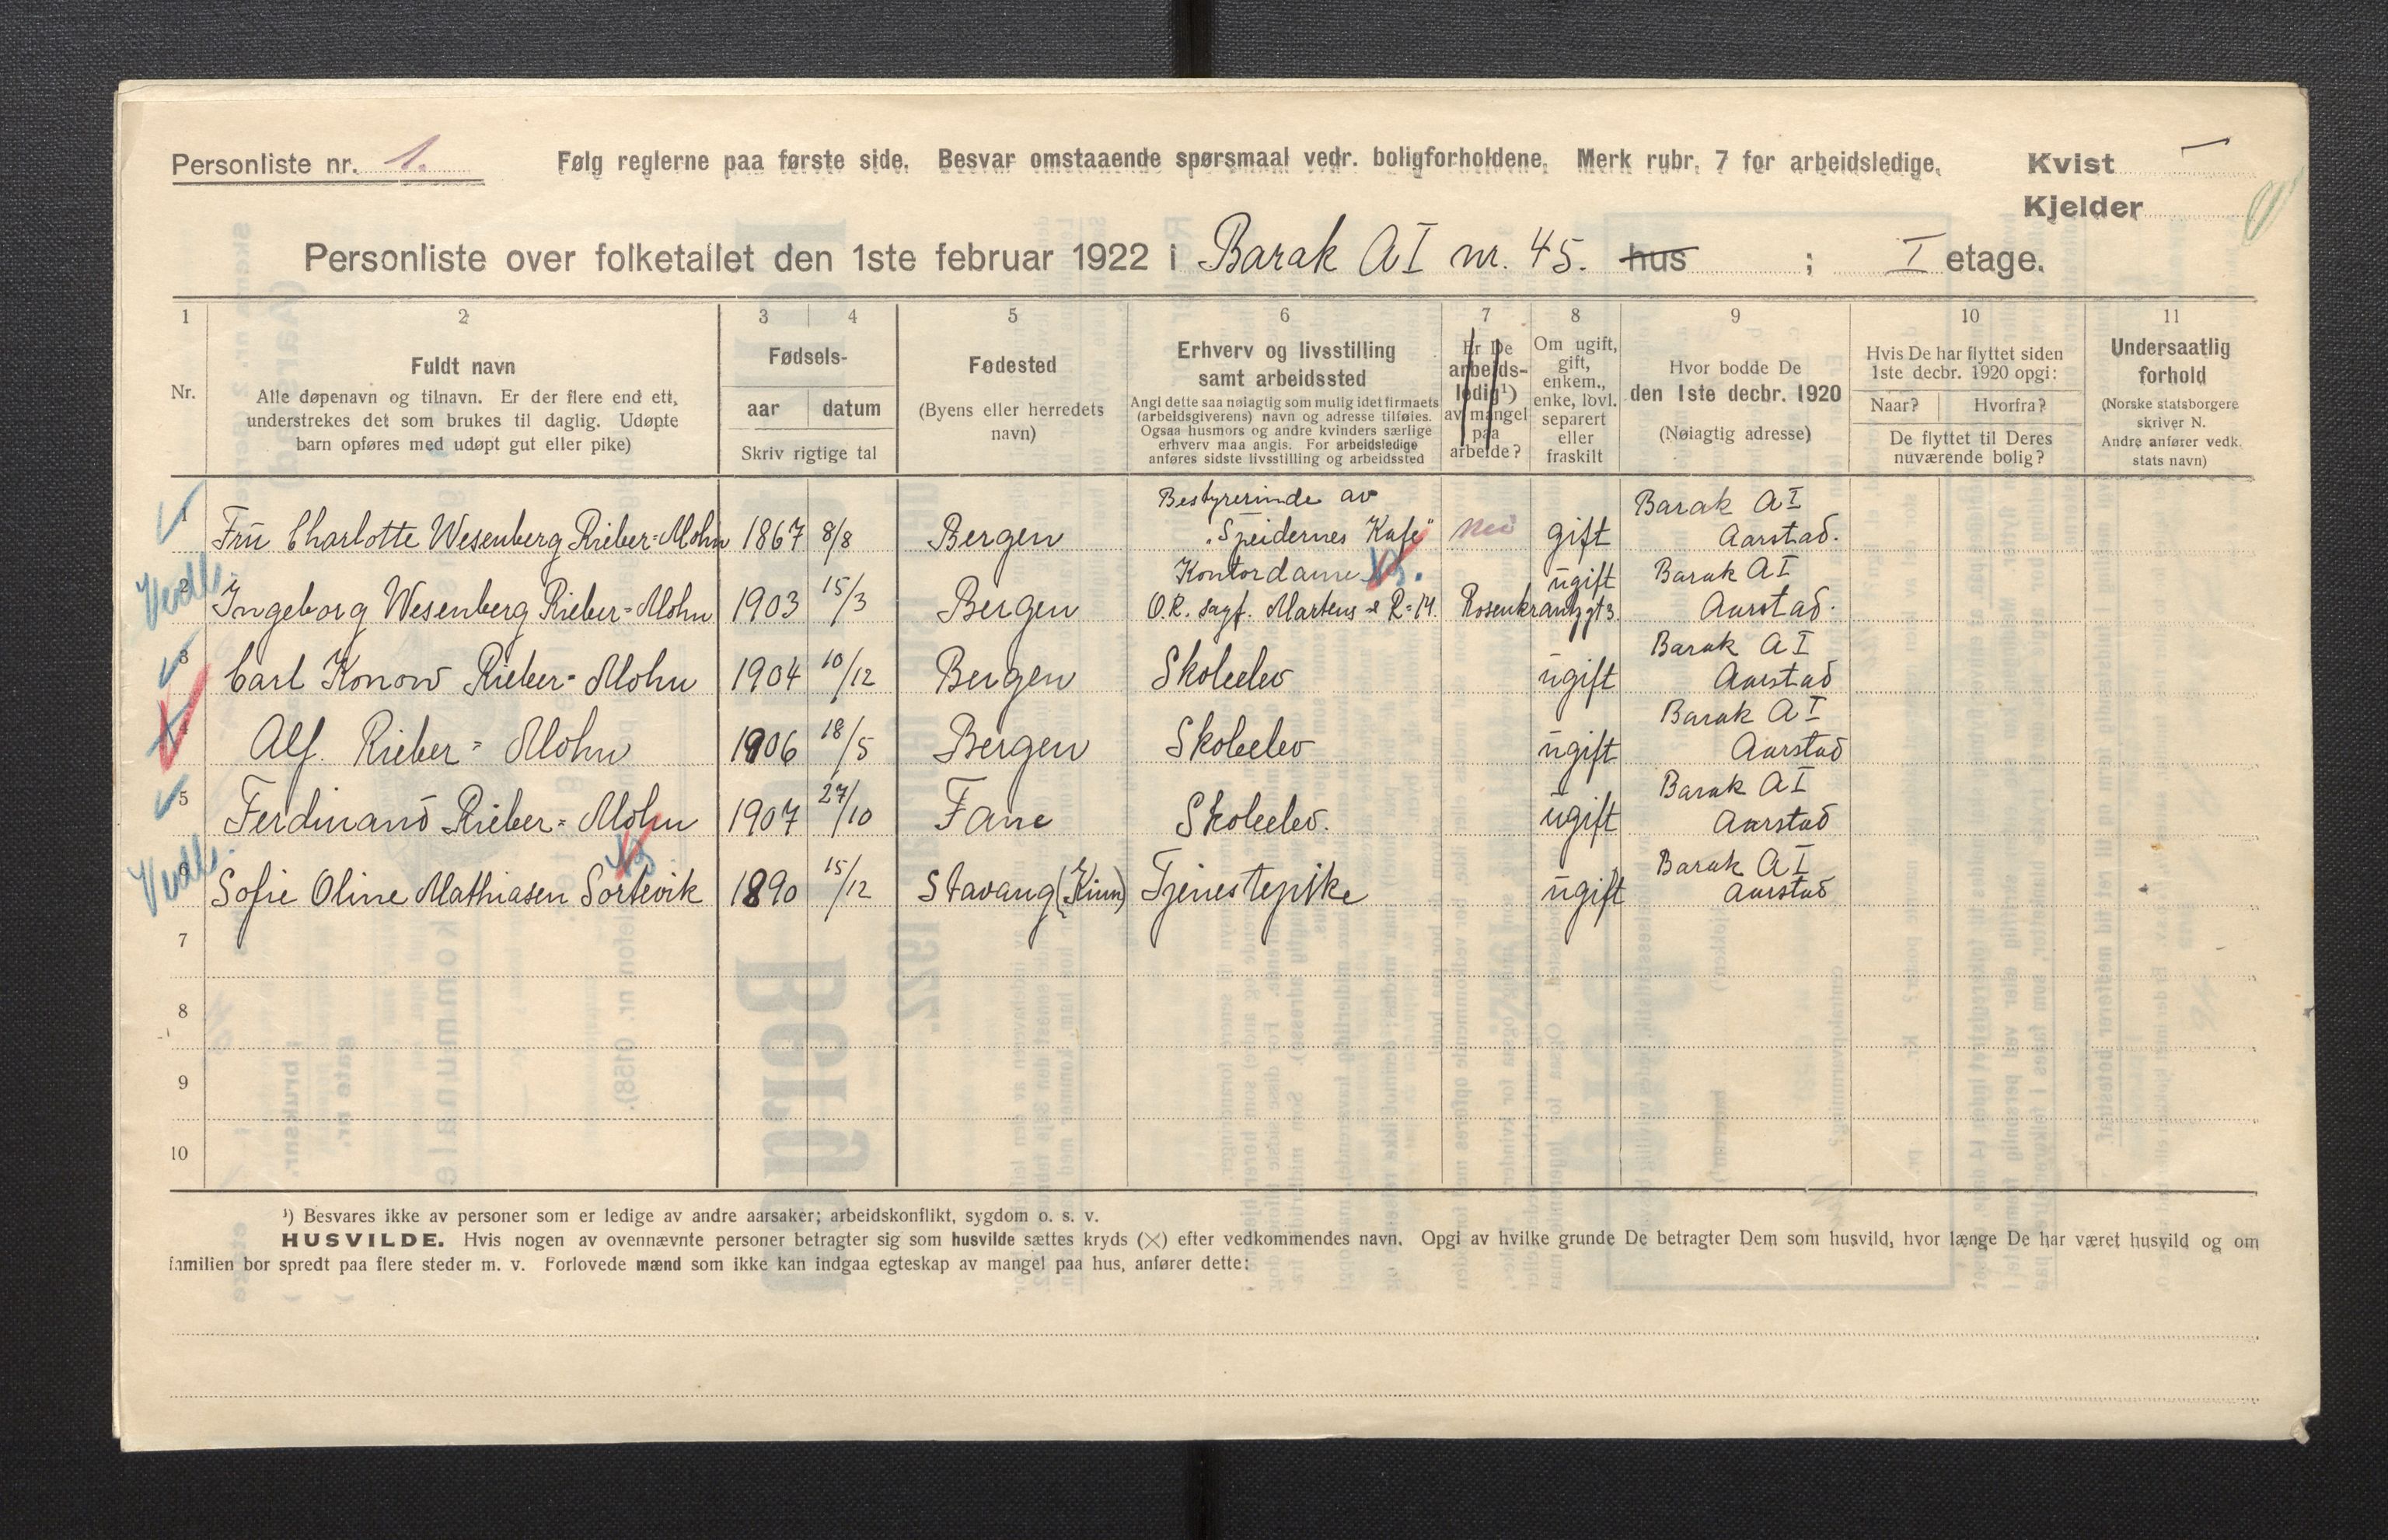 Personliste nr. 1. Følg reglerne paa første side. Besvar omstaaende spørsmaal vedr. boligforholdene. Merk rubr. 7 for arbeidsledige. Kvist
Kjelder
Personliste over folketallet den 1ste februar 1922 i Barak A I nr. 45. hus ; I etage.
1 2 3 4 5 6 7 8 9 10 11
Nr.
Fuldt navn
Alle døpenavn og tilnavn. Er der flere end ett,
understrekes det som brukes til daglig. Udøpte
barn opføres med udøpt gut eller pike)
Fødsels-
aar datum
Skriv rigtige tal
Fødested
(Byens eller herredets
navn)
Erhverv og livsstilling
samt arbeidssted
Angi dette saa nøiagtig som mulig idet firmaets
(arbeidsgiverens) navn og adresse tilføies.
Ogsaa husmors og andre kvinders særlige
erhverv maa angis. For arbeidsledige
anføres sidste livsstilling og arbeidssted
Er De
arbeids-
ledig¹)
av mangel
paa
arbeide?
Om ugift,
gift,
enkem.,
enke, lovl.
separert
eller
fraskilt
Hvor bodde De
den 1ste decbr. 1920
(Nøiagtig adresse)
Hvis De har flyttet siden
1ste decbr. 1920 opgi:
Naar? Hvorfra?
De flyttet til Deres
nuværende bolig?
Undersaatlig
forhold
(Norske statsborgere
skriver N.
Andre anfører vedk.
stats navn)
Bestyrerinde av Barak A I
1 Frü Charlotte Wesenberg Rieber-Mohn 1867 8/8 Bergen "Speidernes Kafe" nei gift Aarstad.
Kontordame ügift Barak A I
2 Ingeborg Wesenberg Rieber-Mohn 1903 15/3 Bergen O.R. sagf. Martens & R-M. Rosenkrantzgt 3. Aarstad.
Barak A I
3 Carl Konow Rieber-Mohn 1904 10/12 Bergen Skoleelev ügift Aarstad
Barak A I
Alf. Rieber-Mohn 1906 18/5 Bergen Skoleelev ügift Aarstad
Barak A I
5 Ferdinand Rieber-Mohn 1907 27/10 Fane Skoleelev. ügift Aarstad
Barak A I
6 Sofie Oline Mathiasen Sortevik 1890 15/12 Stavang (Kinn) Tjenestepike ügift Aarstad
7
8
9
10
¹) Besvares ikke av personer som er ledige av andre aarsaker; arbeidskonflikt, sygdom o. s. v.
HUSVILDE. Hvis nogen av ovennævnte personer betragter sig som husvilde sættes kryds (×) efter vedkommendes navn. Opgi av hvilke grunde De betragter Dem som husvild, hvor længe De har været husvild og om
familien bor spredt paa flere steder m. v. Forlovede mænd som ikke kan indgaa egteskap av mangel paa hus, anfører dette: